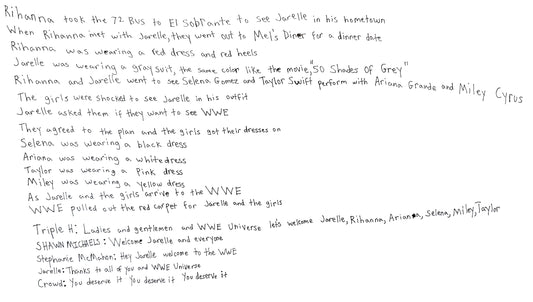 Rihanna took the 72 Bus to El Sobrante to see Jarelle in his hometown
When Rihanna met with Jarelle, they went out to Mel's Diner for a dinner date
Rihanna was wearing a red dress and red heels
Jarelle was wearing a gray suit, the same color like the movie, "50 Shades Of Grey"
Rihanna and Jarelle went to see Selena Gomez and Taylor Swift perform with Ariana Grande and Miley Cyrus
The girls were shocked to see Jarelle in his outfit
Jarelle asked them if they want to see WWE
They agreed to the plan and the girls got their dresses on
Selena was wearing a black dress
Ariana was wearing a white dress
Taylor was wearing a Pink dress
Miley was wearing a Yellow dress
As Jarelle and the girls arrive to the WWE
WWE pulled out the red carpet for Jarelle and the girls
Triple H: Ladies and gentlemen and WWE Universe lets welcome Jarelle, Rihanna, Ariana, Selena, Miley, Taylor
SHAWN MICHAELS: Welcome Jarelle and everyone
Stephanie McMahon: Hey Jarelle welcome to the WWE
Jarelle: Thanks to all of you and WWE Universe
Crowd: You deserve it You deserve it You deserve it